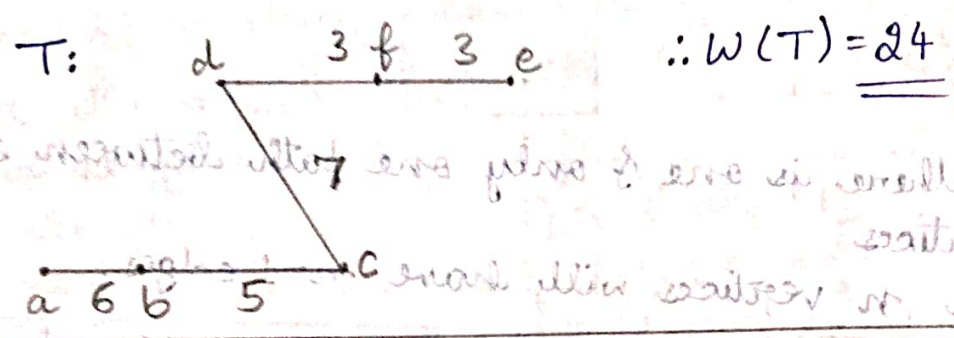 T:
d 3 f 3 e
∴ W(T) = 24
7
c
a 6 b 5